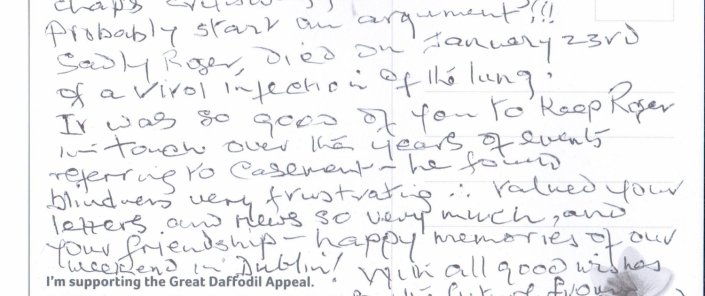 Probably start an argument!!!
Sadly Roger, died on January 23rd
of a viral infection of the lung.
It was so good of you to keep Roger
in touch over the years of events
referring to Casement – he found
blindness very frustrating ∴ valued your
letters and news so very much, and
your friendship – happy memories of our
weekend in Dublin! With all good wishes
I'm supporting the Great Daffodil Appeal.